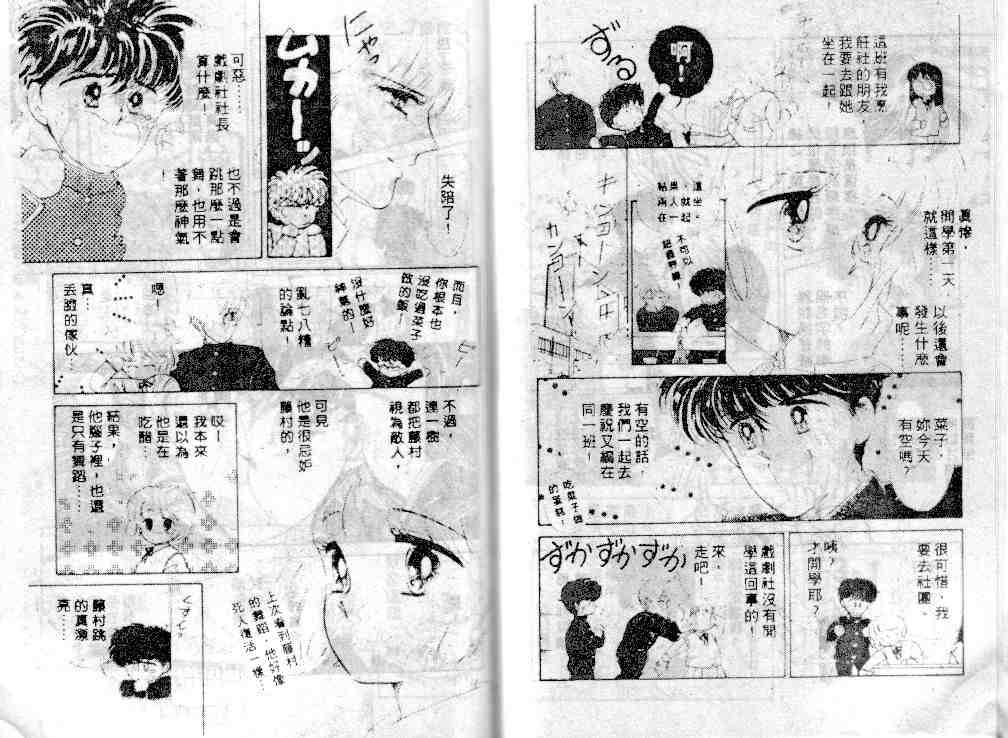 這班有我烹
飪社的朋友
我要去跟她
坐在一起！
啊！
ずる
真慘，
開學第一天，
就這樣……
以後還會
發生什麼
事呢……
不可以
キンコーン
カンコーン
菜子，
妳今天
有空嗎？
有空的話，
我們一起去
慶祝又編在
同一班！
很可惜，我
要去社團。
咦？
才開學耶？
戲劇社沒有開
學這回事的！
來，
走吧！
ずかずかずか
にやっ
失陪了！
ムカーッ
可惡……
戲劇社社長
算什麼！
也不過是會
跳那麼一點
舞，也用不
著那麼神氣
！
而且，
你根本也
沒吃過菜子
做的飯！
沒什麼好
神氣的！
亂七八糟
的論點！
嗯！
真……
丟臉的傢伙……
不過，
連一樹
都把藤村
視為敵人，
可見
他是很忌妒
藤村的，
哎！
我本來
還以為
他是在
吃醋……
結果，
他腦子裡，也還
是只有舞蹈……
上次看到藤村
的舞蹈，他好像
死人復活一樣…
藤村跳
的真漂
亮……